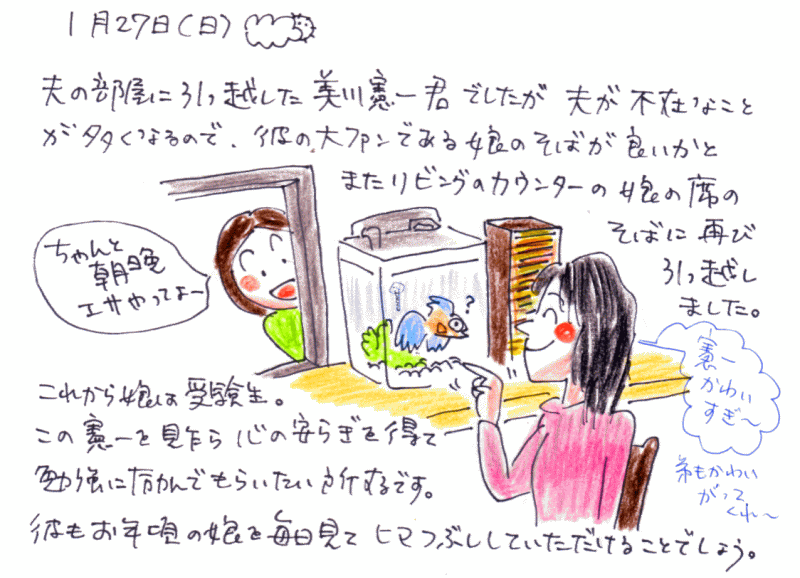 1月27日(日)
夫の部屋に引っ越した美川憲一君でしたが 夫が不在なこと
が多くなるので、彼の大ファンである娘のそばが良いかと
またリビングのカウンターの娘の席の
そばに再び
引っ越し
ました。
ちゃんと
朝晩
エサやってよー
?
憲一
かわい
すぎ〜
弟もかわい
がって
くれ〜
これから娘は受験生。
この憲一を見ながら心の安らぎを得て
勉強に励んでもらいたい所存です。
彼もお年頃の娘を毎日見てヒマつぶししていただけることでしょう。